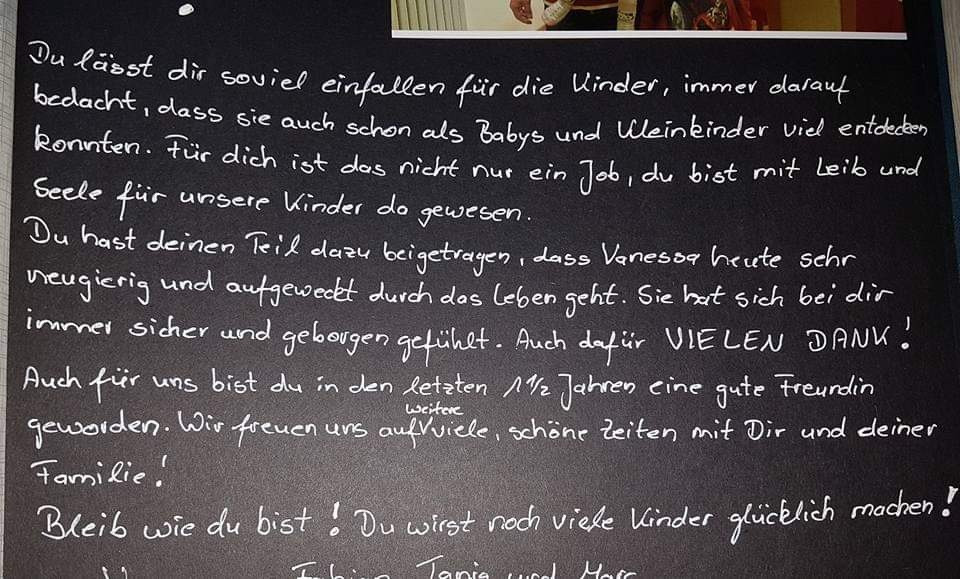 Du lässt dir soviel einfallen für die Kinder, immer darauf
bedacht, dass sie auch schon als Babys und Kleinkinder viel entdecken
konnten. Für dich ist das nicht nur ein Job, du bist mit Leib und
Seele für unsere Kinder da gewesen.
Du hast deinen Teil dazu beigetragen, dass Vanessa heute sehr
neugierig und aufgeweckt durch das Leben geht. Sie hat sich bei dir
immer sicher und geborgen gefühlt. Auch dafür VIELEN DANK!
Auch für uns bist du in den letzten 1 1/2 Jahren eine gute Freundin
weitere
geworden. Wir freuen uns auf viele, schöne Zeiten mit Dir und deiner
Familie!
Bleib wie du bist! Du wirst noch viele Kinder glücklich machen!
Tanja und Marc